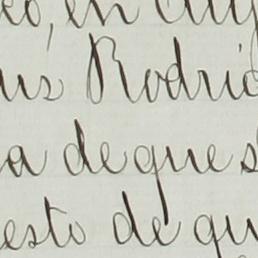 eo, en
us Rodrig
a de que s
esto de qu